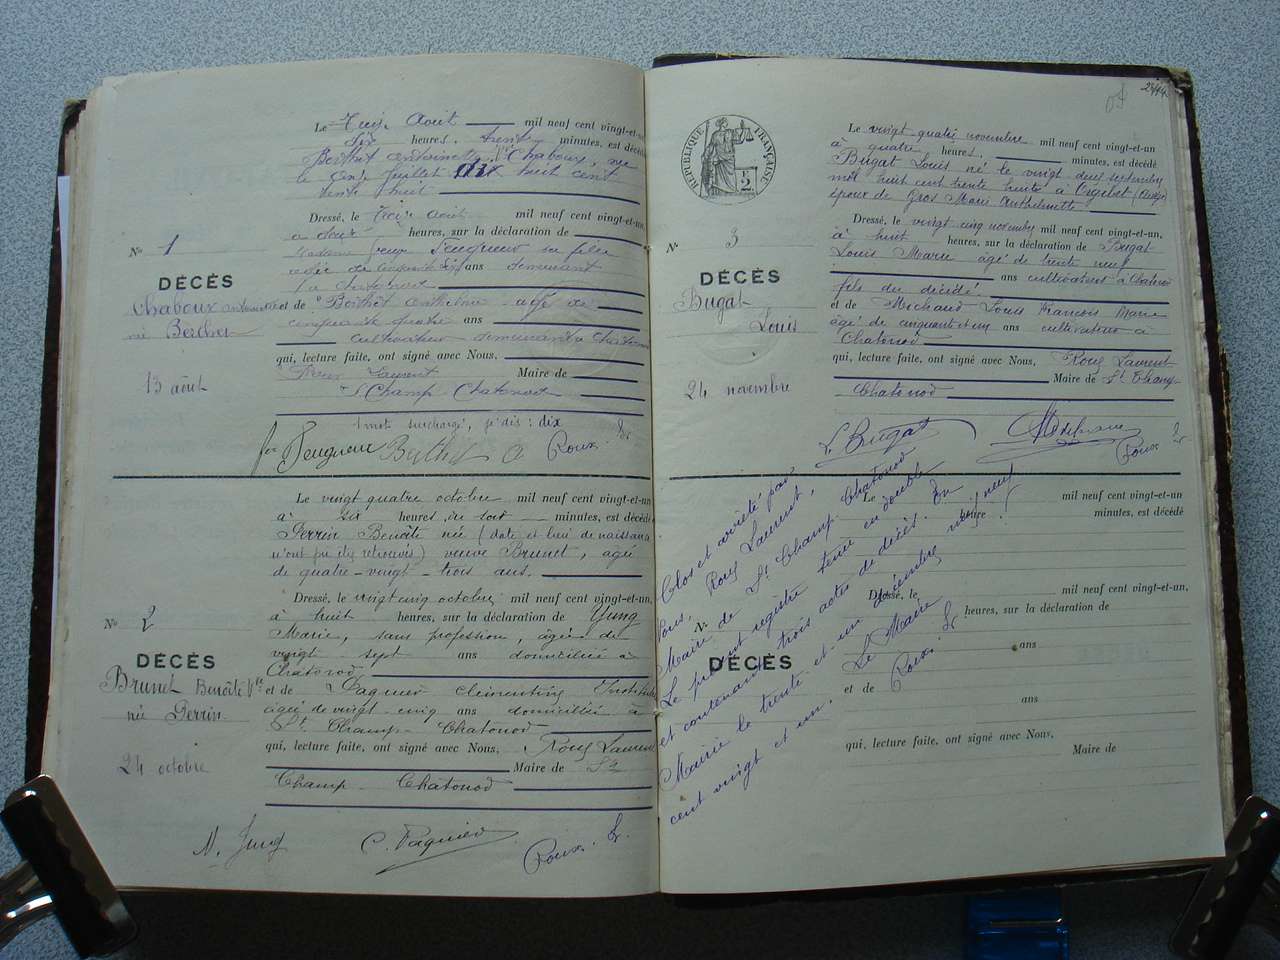 Le Treize Août mil neuf cent vingt-et-un,
Six heures, trente minutes, est décédé
Berthet Antoinette, Vve Chaboux, née
le onze juillet dix huit cent
trente huit
Dressé, le Treize août mil neuf cent vingt-et-un,
à heures, sur la déclaration de
Madame Veuve Peugneur sa fille
agée de cinquante six ans demeurant
à Chatonod
et de Berthet Anthelme agé de
cinquante quatre ans
cultivateur demeurant à Chatonod
qui, lecture faite, ont signé avec Nous,
Roux Laurent Maire de
St Champ Chatonod
1 mot surchargé, je dis : dix
Berthet A Roux
No 1
DÉCÈS
Chaboux Antoinette
née Berthet
13 août
Le vingt quatre octobre mil neuf cent vingt-et-un
à six heures du soir minutes, est décédé
Perrin Benoîte née (date et lieu de naissance
n'ont pu être retrouvés) veuve Brunet, agée
de quatre-vingt-trois ans.
Dressé, le vingt cinq octobre mil neuf cent vingt-et-un,
à huit heures, sur la déclaration de Yung
Marie, sans profession, âgée de
vingt-sept ans domiciliée à
Chatonod
et de Paquier Clémentine Institutrice
âgée de vingt-cinq ans domiciliée à
St Champ-Chatonod
qui, lecture faite, ont signé avec Nous, Roux Laurent
Maire de St
Champ-Chatonod
No 2
DÉCÈS
Brunet Benoîte Vve
née Perrin
24 octobre
M. Jung C. Paquier Roux L.
244
RÉPUBLIQUE FRANÇAISE
Le vingt quatre novembre mil neuf cent vingt-et-un
à quatre heures, minutes, est décédé
Bugat Louis né le vingt deux septembre
mil huit cent trente huit à
époux de Gros Marie Anthelmette
Dressé, le vingt cinq novembre mil neuf cent vingt-et-un,
à huit heures, sur la déclaration de Bugat
Louis Marie âgé de trente neuf
ans cultivateur à Chatonod
fils du décédé
et de Michaud Louis François Marie
âgé de cinquante et un ans cultivateur à
Chatonod
qui, lecture faite, ont signé avec Nous, Roux Laurent
Maire de St Champ
Chatonod
No 3
DÉCÈS
Bugat
Louis
24 novembre
L. Bugat Roux L
Le mil neuf cent vingt-et-un
heure minutes, est décédé
Dressé, le mil neuf cent vingt-et-un,
heures, sur la déclaration de
ans
et de
ans
qui, lecture faite, ont signé avec Nous,
Maire de
No
DÉCÈS
Clos et arrêté par
Nous, Roux Laurent,
Maire de St Champ-Chatonod
Le présent registre tenu en double
et contenant trois actes de décès. En
Mairie le trente-et-un décembre mil neuf
cent vingt et un.
Le Maire
Roux L.